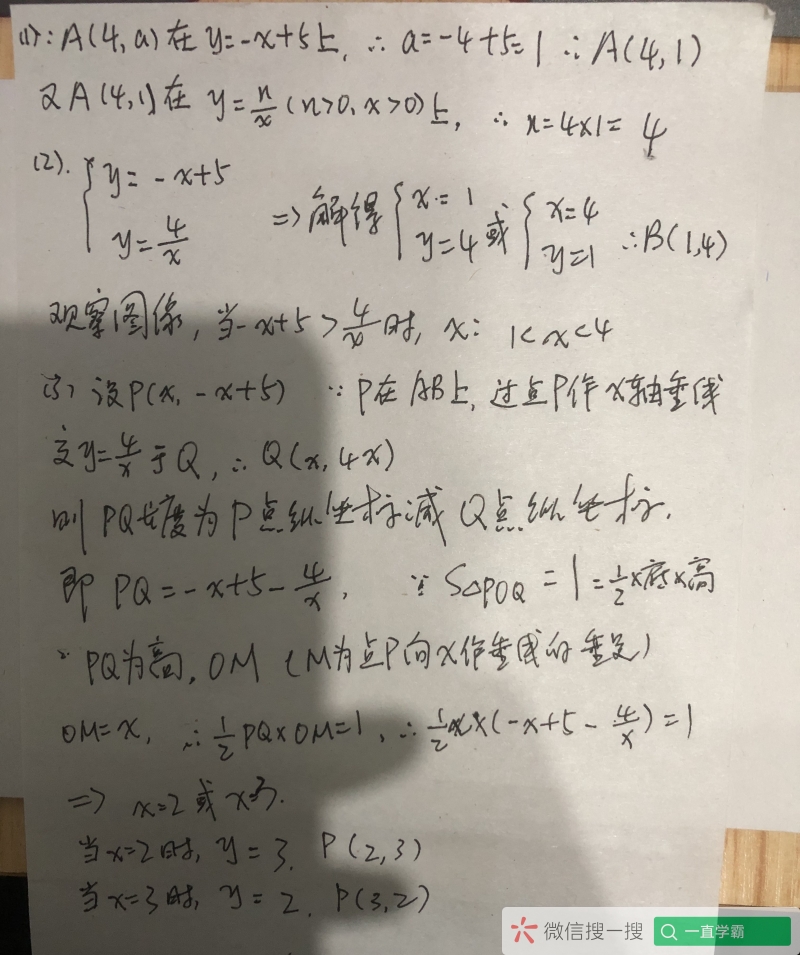 (1): A(4,a)在y=-x+5上, ∴a=-4+5=1 ∴A(4,1)
又A(4,1)在 y=n/x (n>0,x>0)上, ∴n=4×1=4
(2). {y=-x+5 y=4/x => 解得 {x=1 y=4 或 {x=4 y=1 ∴B(1,4)
观察图像, 当-x+5>4/x时, x: 1<x<4
(3) 设P(x,-x+5) ∵P在AB上, 过点P作x轴垂线
交y=4/x于Q, ∴Q(x,4x)
则PQ长度为P点纵坐标减Q点纵坐标.
即PQ=-x+5-4/x, ∵S△POQ=1=1/2×底×高
∵PQ为高, OM (M为点P向x作垂线的垂足)
OM=x, ∴1/2PQ×OM=1, ∴1/2x×(-x+5-4/x)=1
=> x=2或x=3.
当x=2时, y=3. P(2,3)
当x=3时, y=2. P(3,2)
微信搜一搜 一直学霸